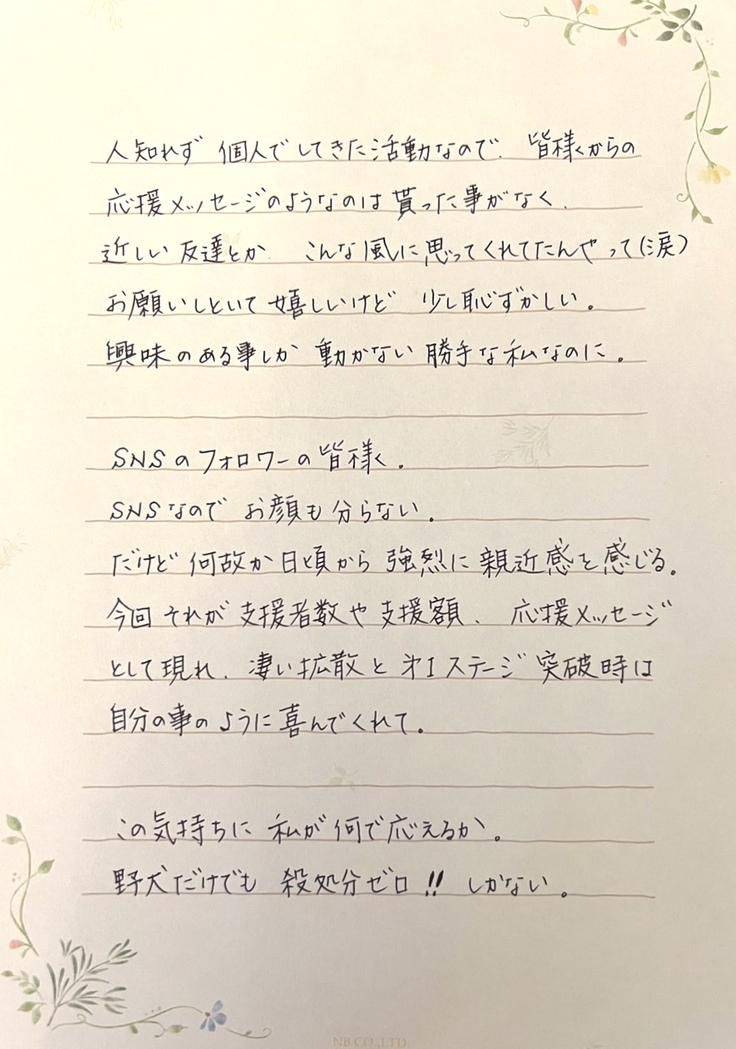 人知れず 個人でしてきた活動なので、皆様からの
応援メッセージのようなのは貰った事がなく、
近しい友達とか こんな風に思ってくれてたんやって(涙)
お願いしといて嬉しいけど 少し恥ずかしい。
興味のある事しか 動かない 勝手な私なのに。
SNSのフォロワーの皆様。
SNSなので お顔も分らない。
だけど 何故か日頃から 強烈に親近感を感じる。
今回 それが支援者数や支援額、応援メッセージ
として現れ、凄い拡散と 第1ステージ 突破時は
自分の事のように喜んでくれて。
この気持ちに 私が何で応えるか、。
野犬だけでも 殺処分ゼロ!! しかない。
NB.CO.,LTD.